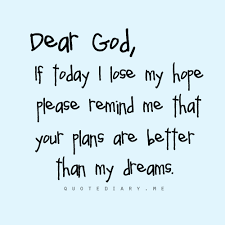 Dear God,
If today I lose my hope
please remind me that
your plans are better
than my dreams.
QUOTEDIARY.ME